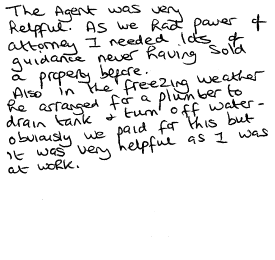 The Agent was very
helpful. As we had power of
attorney I needed lots of
guidance never having sold
a property before.
Also in the freezing weather
he arranged for a plumber to
drain tank & turn off water -
obviously we paid for this but
it was very helpful as I was
at work.